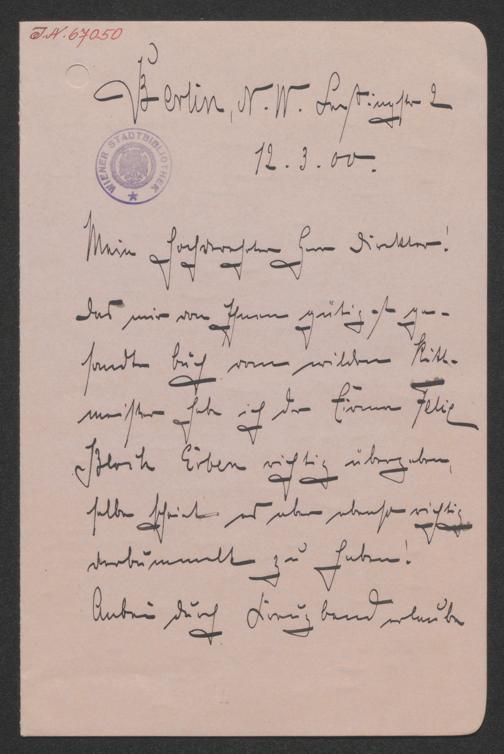 I.N. 67050
Berlin, N.W. Lessingstr 2
12.3.00.
WIENER STADTBIBLIOTHEK
Mein hochverehrter Herr Direktor!
Das mir von Ihnen gütigst ge-
sandte Buch vom wilden Ritt-
meister habe ich der Firma Felix
Bloch Erben richtig übergeben,
selbe scheint es aber ebenso richtig
verbummelt zu haben!
Anbei durch Kreuzband erlaube